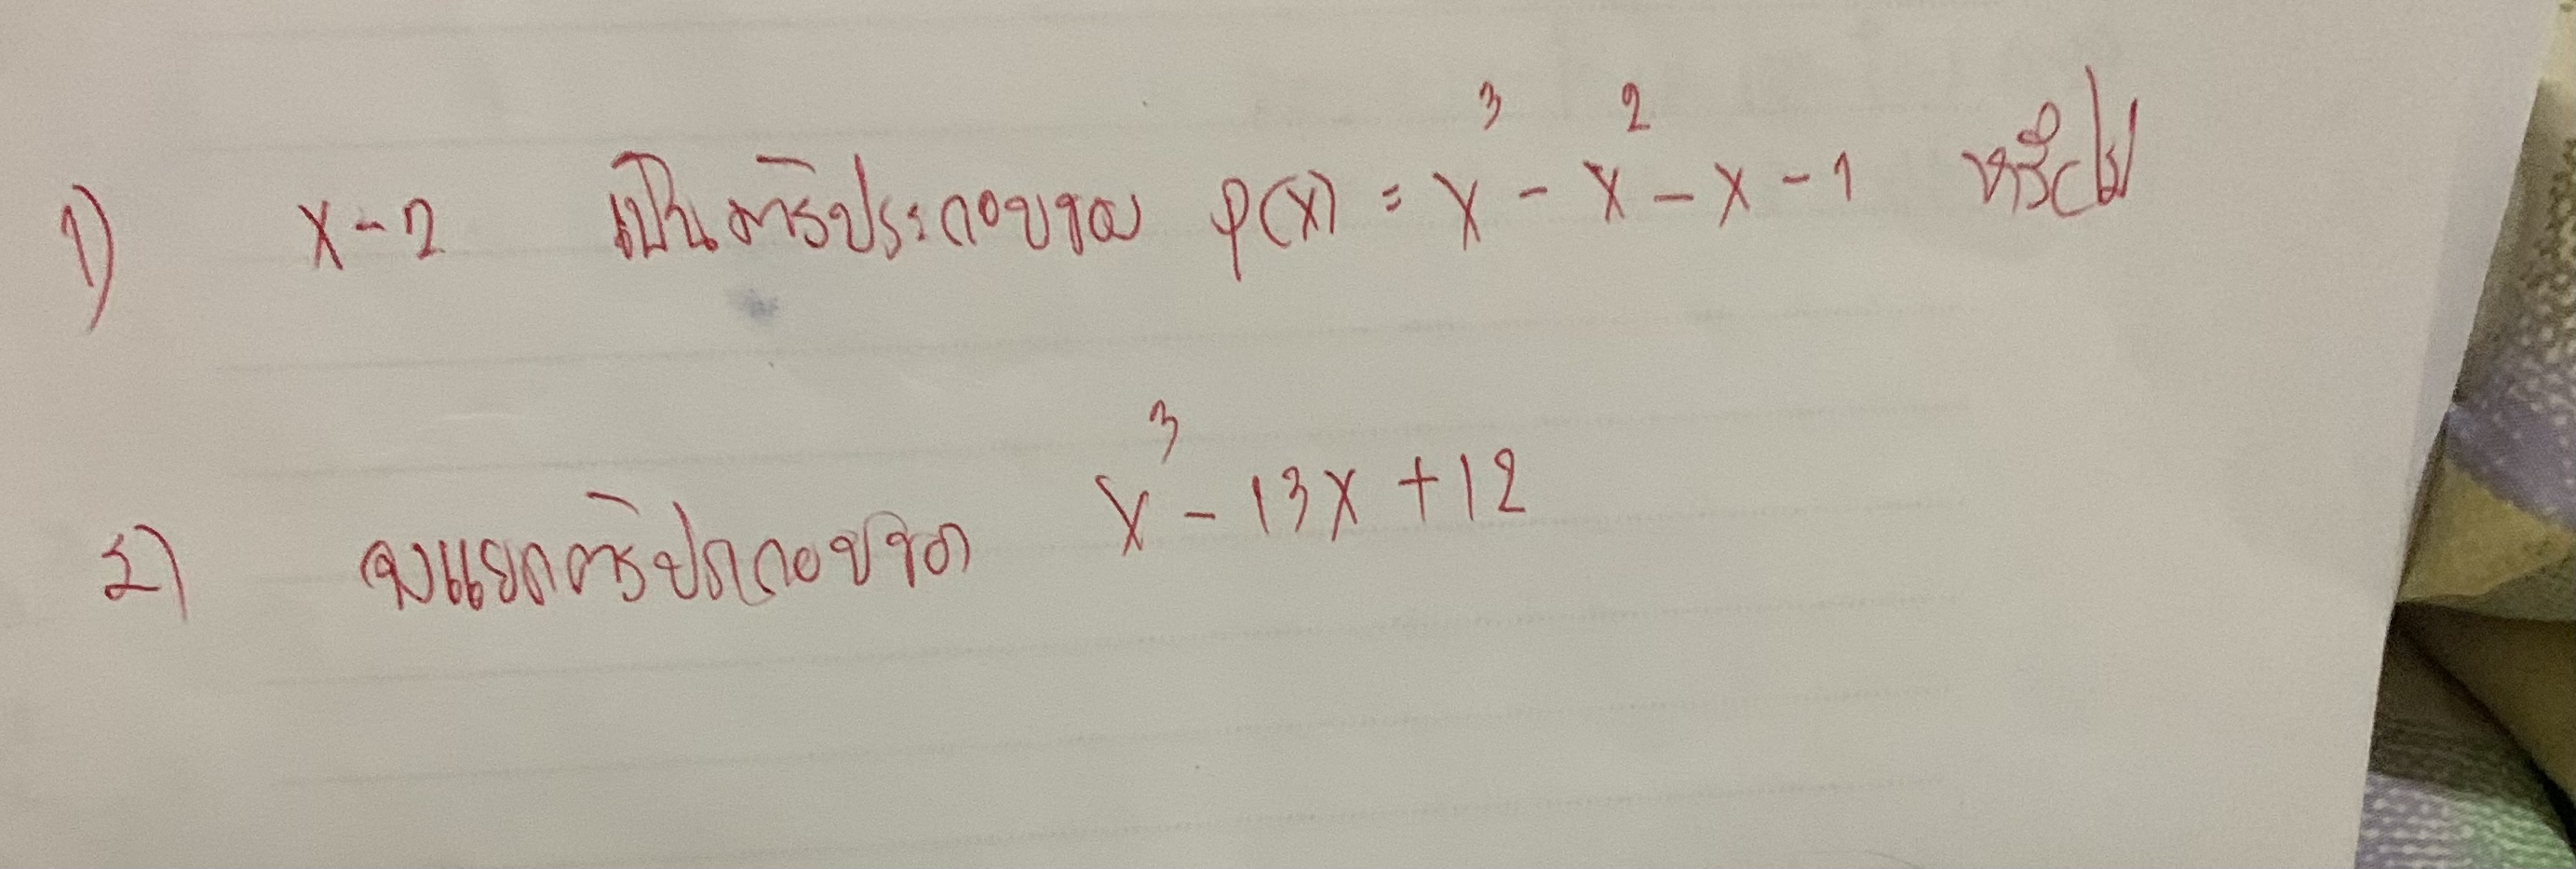 1) x-2 เป็นตัวประกอบของ P(x) = x³ - x² - x - 1 หรือไม่
2) จงแยกตัวประกอบของ x³ - 13x + 12